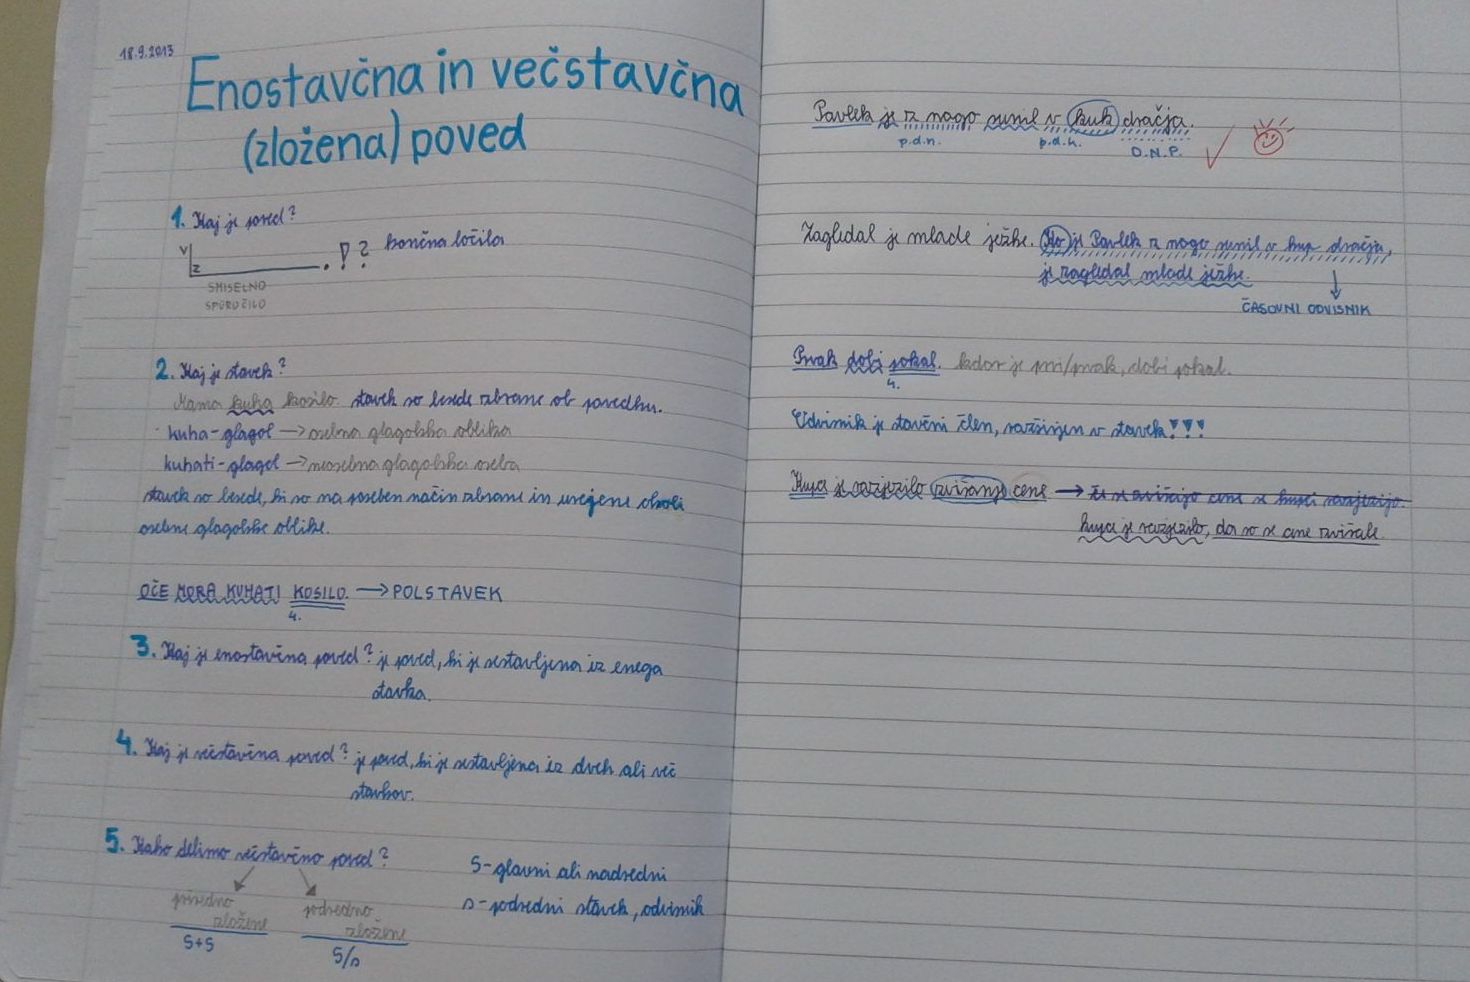 18.9.2013
Enostavčna in večstavčna
(zložena) poved
1. Kaj je poved?
V
Z . ! ? končna ločila
SMISELNO
SPOROČILO
2. Kaj je stavek?
Mama kuha kosilo. stavek so besede zbrane ob povedku.
kuha-glagol → osebna glagolska oblika
kuhati-glagol → neosebna glagolska oseba
stavek so besede, ki so na poseben način zbrane in urejene okoli
osebne glagolske oblike.
OČE MORA KUHATI KOSILO. → POLSTAVEK
4.
3. Kaj je enostavčna poved? je poved, ki je sestavljena iz enega
stavka.
4. Kaj je večstavčna poved? je poved, ki je sestavljena iz dveh ali več
stavkov.
5. Kako delimo večstavčno poved?
priredno zložene
podredno zložene
S+S
S/s
S-glavni ali nadredni
s-podredni stavek, odvisnik
Pavlek je z nogo sunil v kuk dračja.
p.d.n. p.d.k. D.N.P.
Zagledal je mlade ježke. Ko je Pavlek z nogo sunil v kup dračja,
je zagledal mlade ježke.
ČASOVNI ODVISNIK
Prvak dobi pokal. kdor je prvi/prvak, dobi pokal.
4.
Odvisnik je stavčni člen, razširjen v stavek!!!
Kupca je razjezilo zvišanje cene → Če se zvišajo cene se kupci razjezijo.
kupca je razjezilo, da so se cene zvišale.